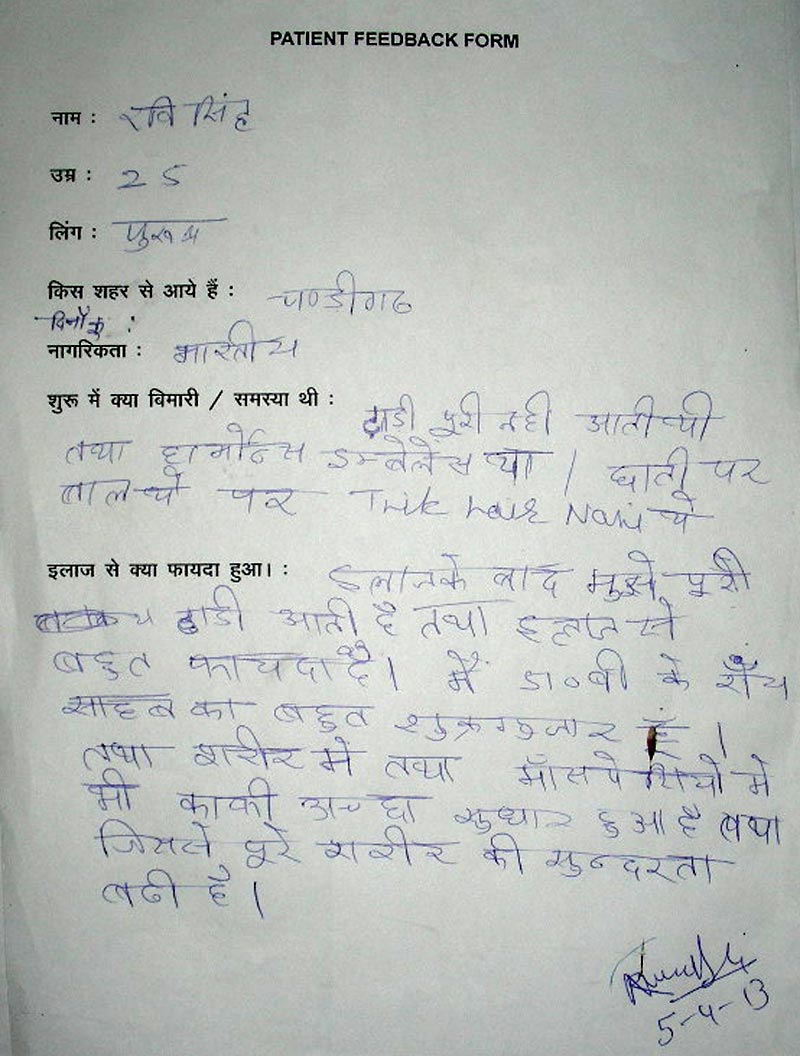 PATIENT FEEDBACK FORM
नाम : रवि सिंह
उम्र : 25
लिंग : पुरूष
किस शहर से आये हैं : चण्डीगढ
दिनाँक :
नागरिकता : भारतीय
शुरू में क्या बिमारी / समस्या थी : दाडी पूरी नही आती थी
तथा हार्मोन्स इम्बेलेंस था / छाती पर
बाल थे पर Thik hair Nahi थे
इलाज से क्या फायदा हुआ। : ईलाज के बाद मुझे पूरी
दाडी आती है तथा इलाज से
बहुत फायदा है। मैं डा० बी के रॉय
साहब का बहुत शुक्रगुजार हूँ ।
तथा शरीर मे तथा माँसपेशियो मे
भी काफी अच्छा सुधार हुआ है तथा
जिससे पूरे शरीर की सुन्दरता
बढी है।
5-4-13